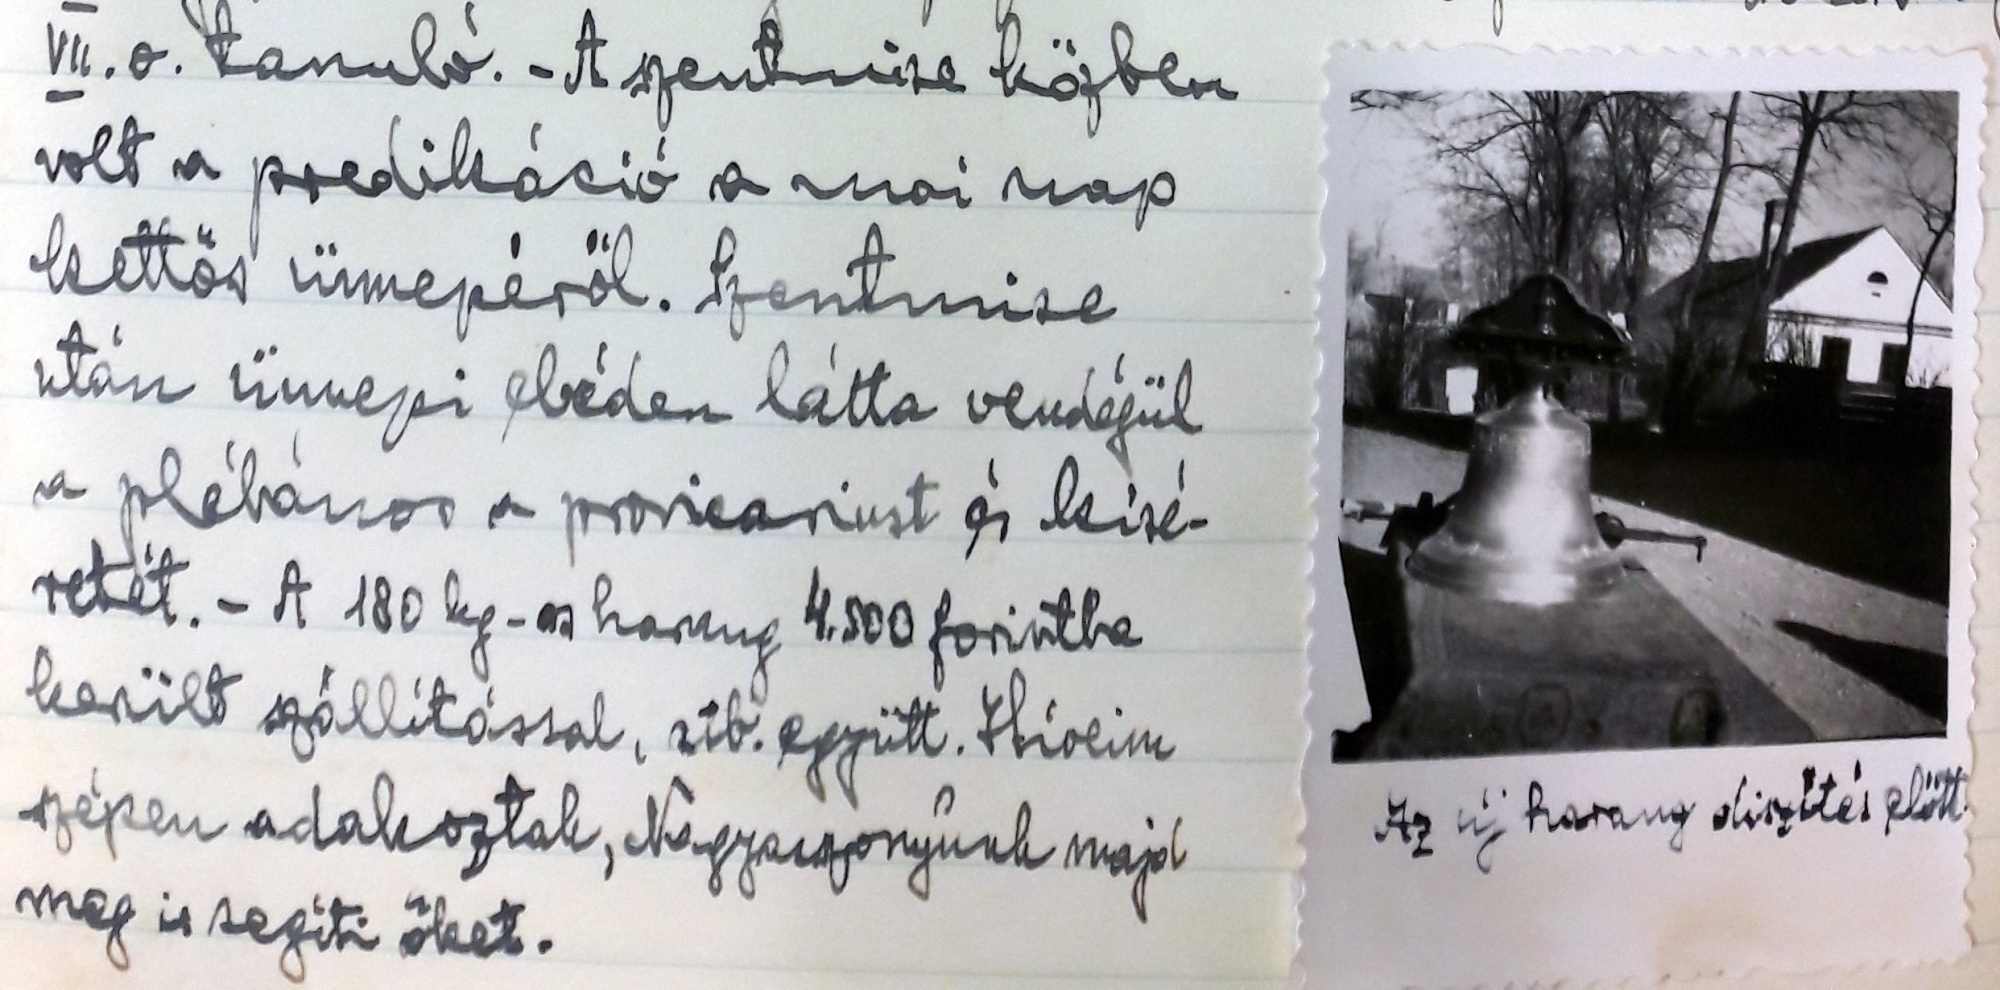 VII. o. tanuló. - A szentmise közben
volt a predikáció a mai nap
kettős ünnepéről. Szentmise
után ünnepi ebéden látta vendégül
a plébános a provicariust és kisé-
retét. - A 180 kg-os harang 4.500 forintba
került szállítással, stb. együtt. Híveim
szépen adakoztak, Nagyasszonyunk majd
meg is segíti őket.
Az új harang díszítés előtt.